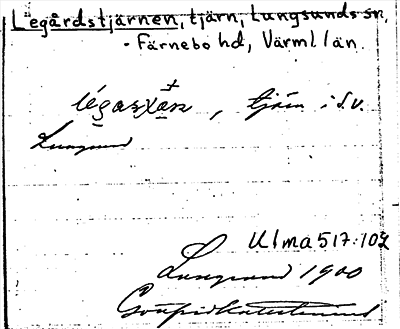 Legårdstjärnen, tjärn, Lungsunds sn,
- Färnebo hd, Värml. län.
tjärn i S.V.
Lungsund
Ulma 517:102
Lungsund 1900